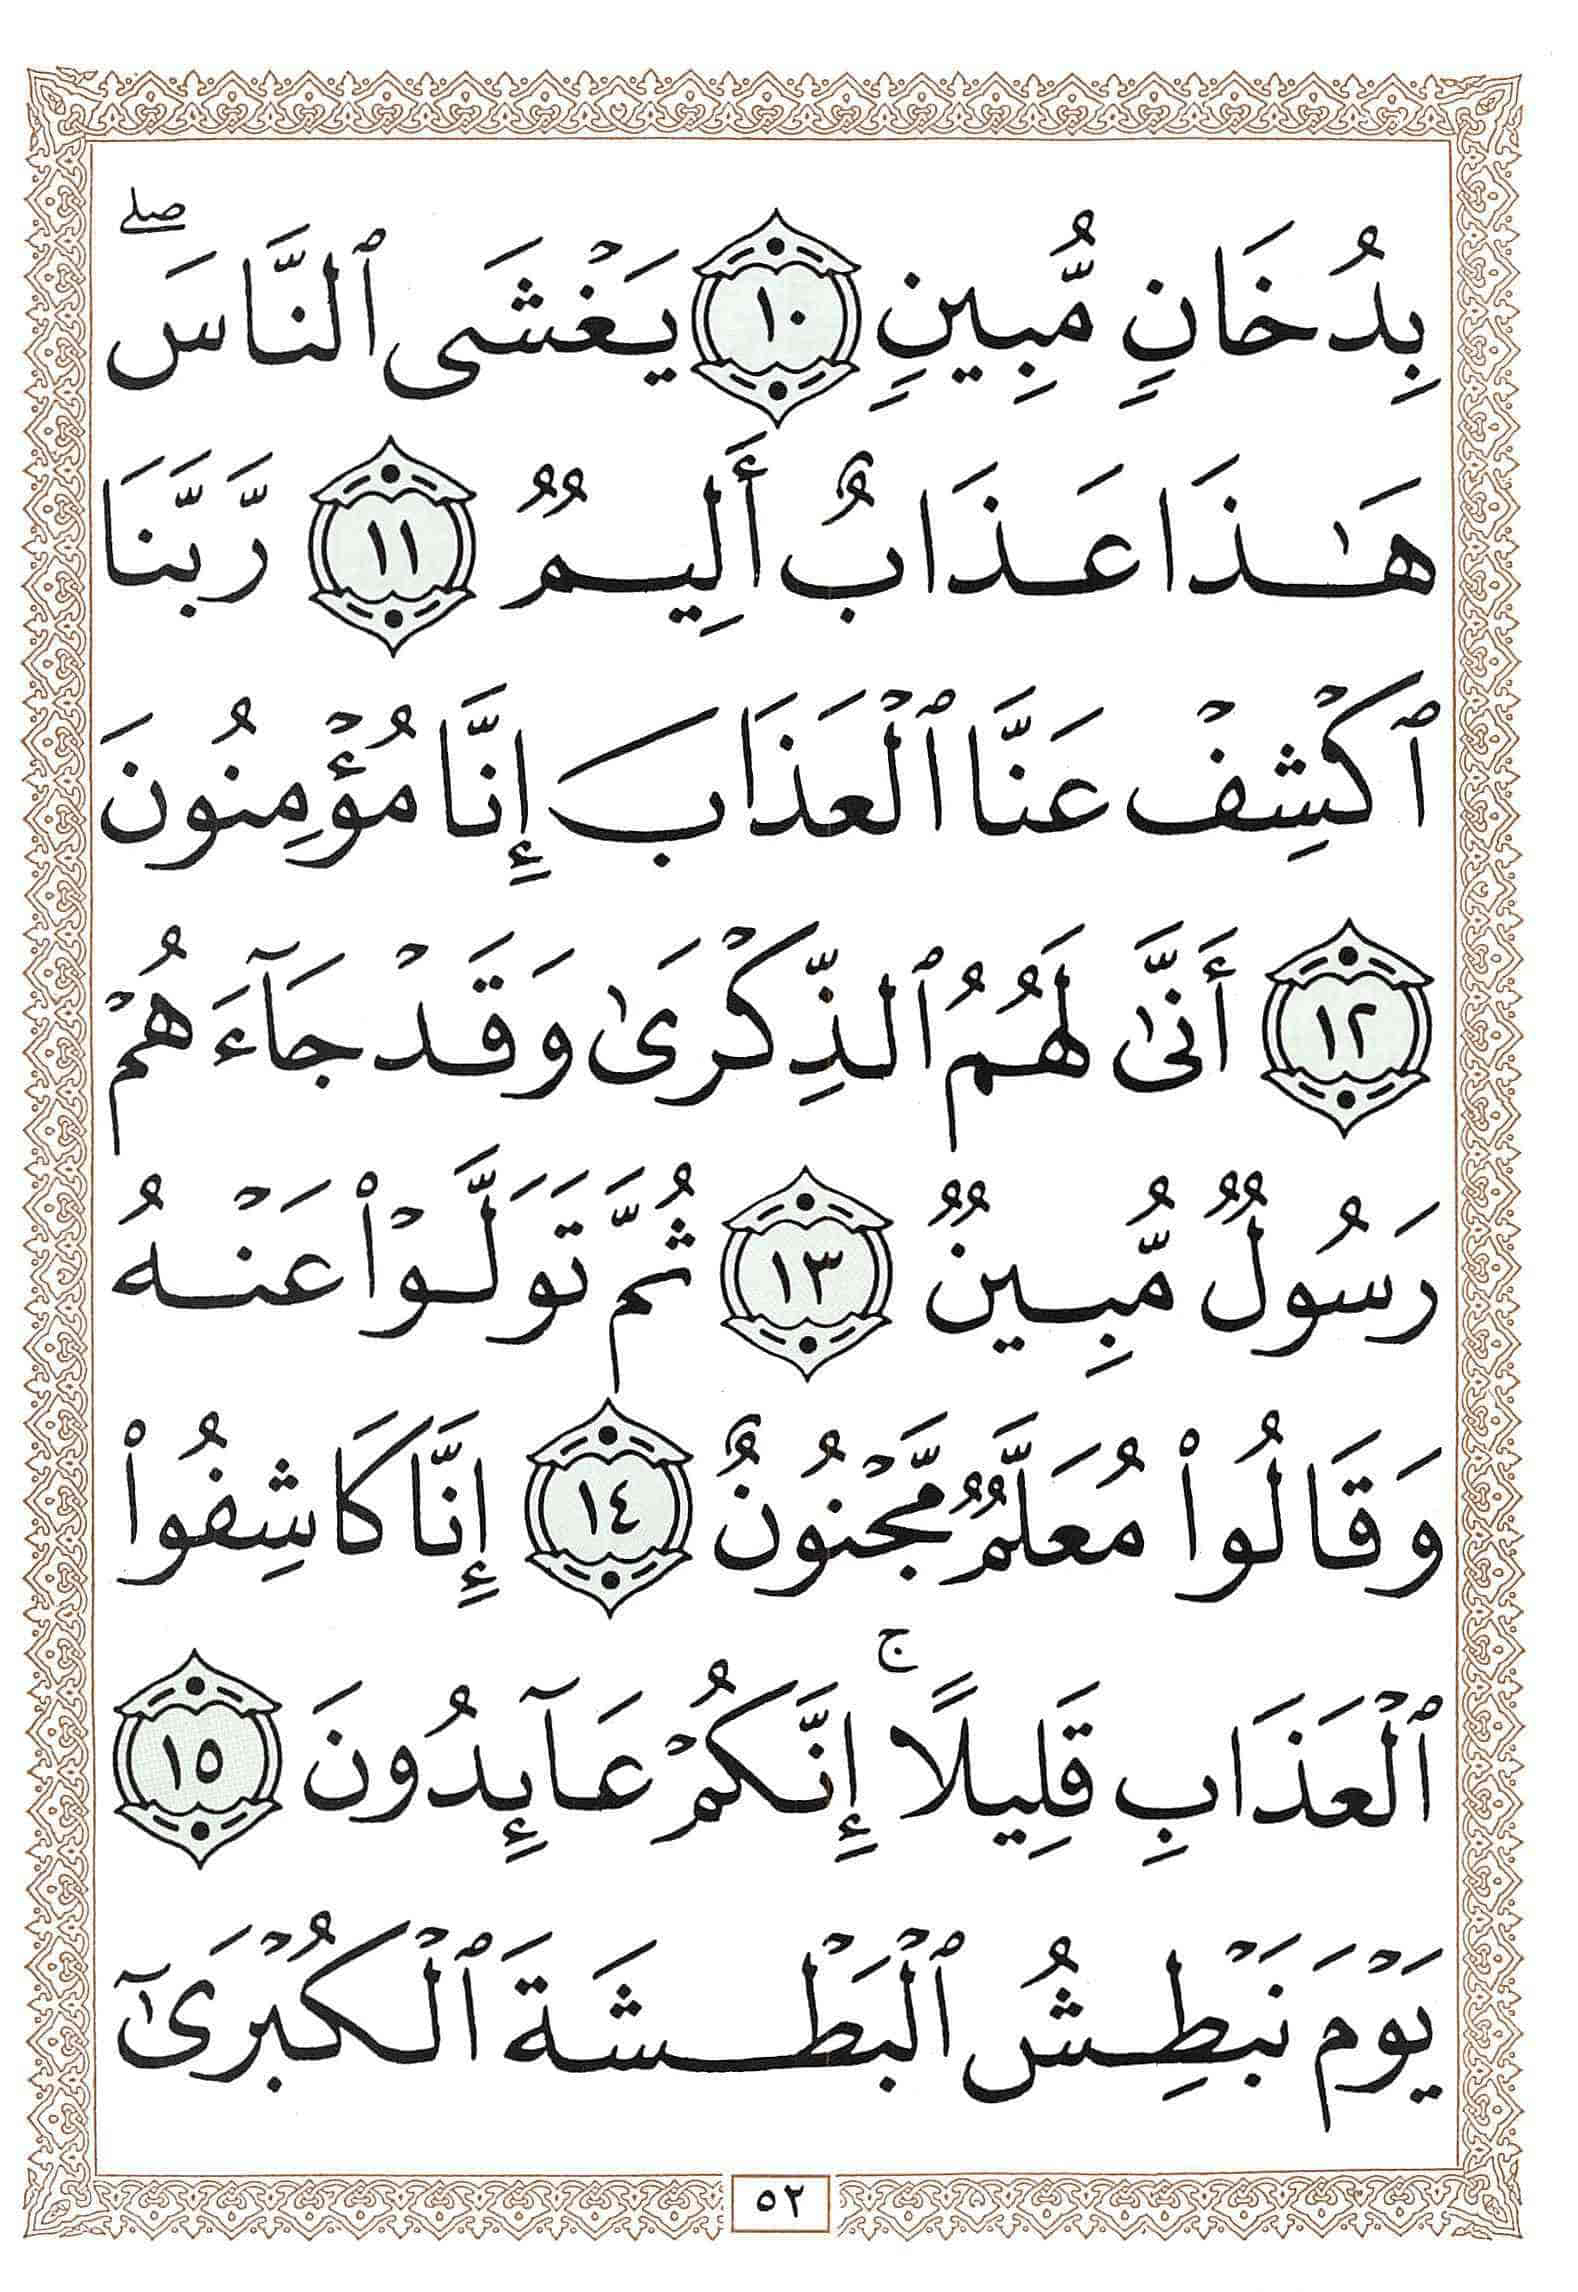 بِدُخَانٍ مُّبِينٍ ١٠ يَغْشَى ٱلنَّاسَۖ
هَٰذَا عَذَابٌ أَلِيمٌ ١١ رَّبَّنَا
ٱكْشِفْ عَنَّا ٱلْعَذَابَ إِنَّا مُؤْمِنُونَ
١٢ أَنَّىٰ لَهُمُ ٱلذِّكْرَىٰ وَقَدْ جَآءَهُمْ
رَسُولٌ مُّبِينٌ ١٣ ثُمَّ تَوَلَّوْا۟ عَنْهُ
وَقَالُوا۟ مُعَلَّمٌ مَّجْنُونٌ ١٤ إِنَّا كَاشِفُوا۟
ٱلْعَذَابِ قَلِيلًاۚ إِنَّكُمْ عَآئِدُونَ ١٥
يَوْمَ نَبْطِشُ ٱلْبَطْشَةَ ٱلْكُبْرَىٰٓ
٥٢